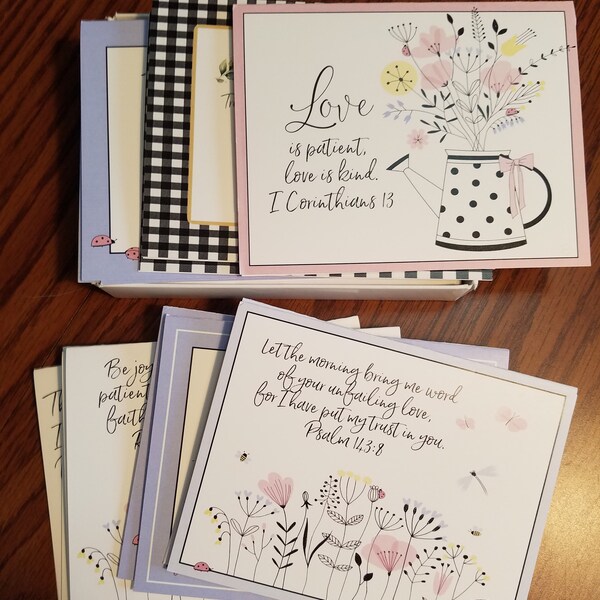 Th
Love
is patient,
love is kind.
I Corinthians 13
Be joy
patient
faith
Let the morning bring me word
of your unfailing love,
for I have put my trust in you.
Psalm 143:8